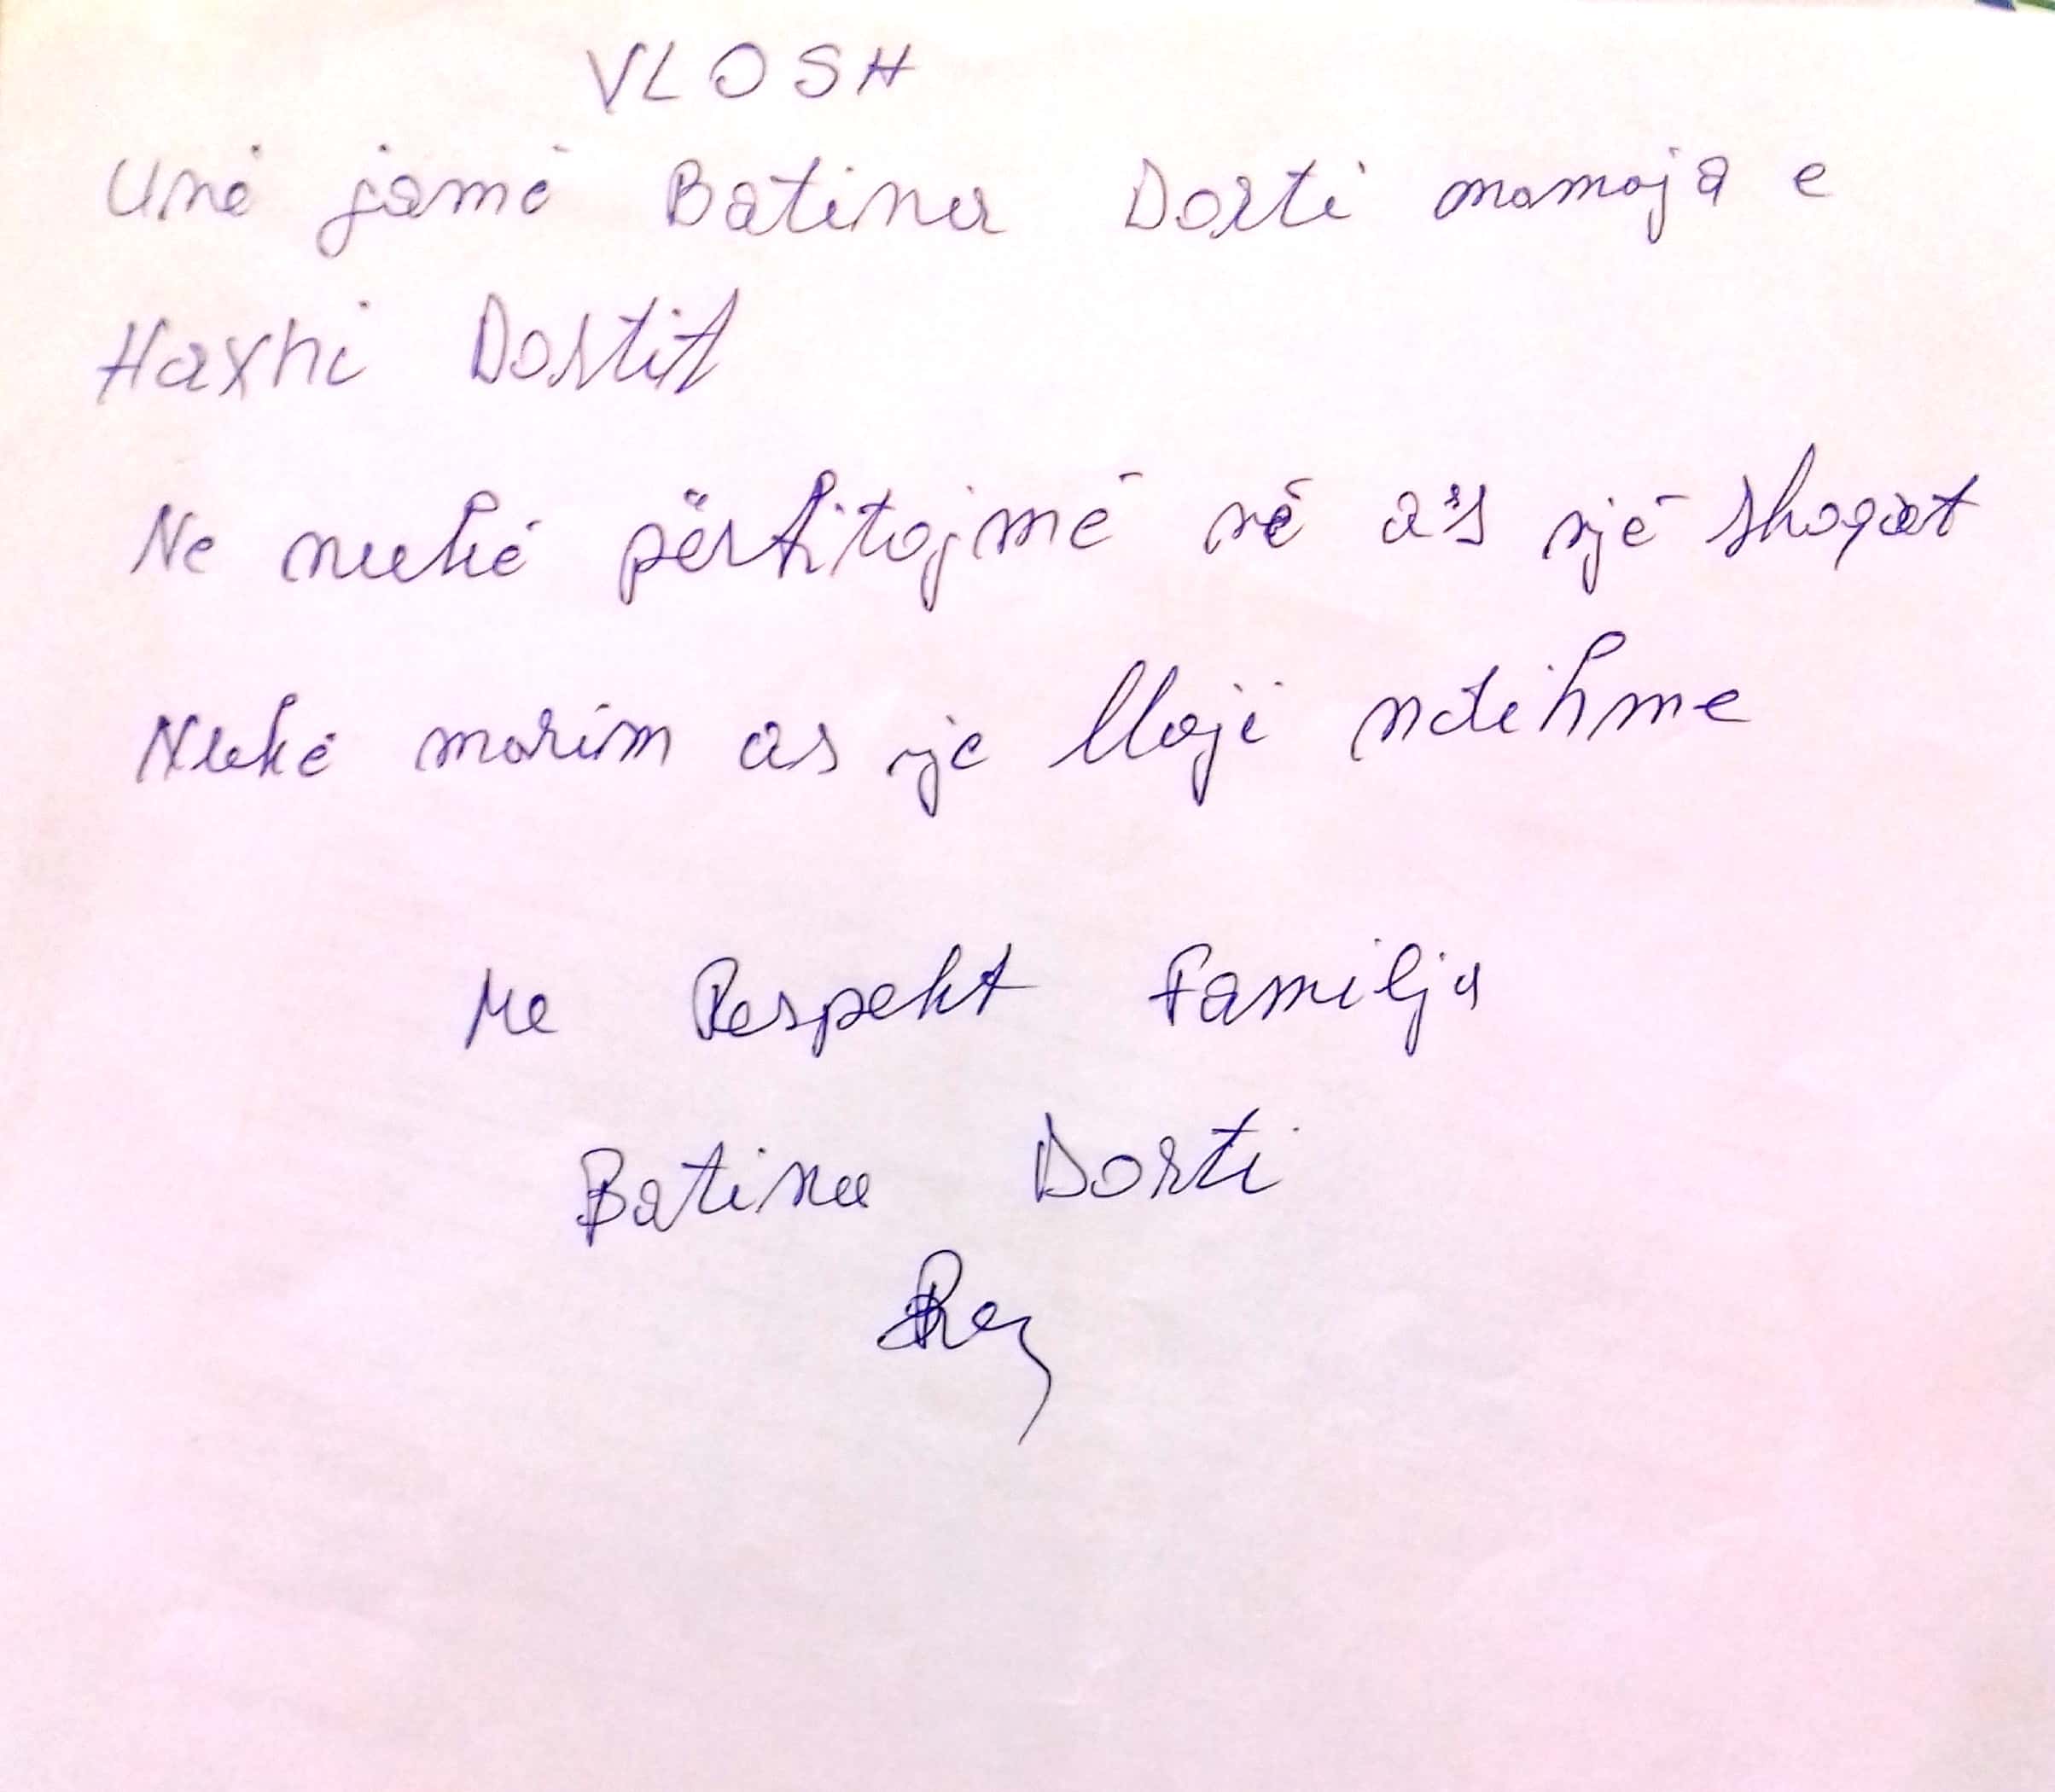 VLOSH
Unë jamë Batina Dorti mamaja e
Haxhi Dortit
Ne nukë përfitojmë në as një shoqat
Nukë marim as nje lloji ndihme
Me Respekt Familja
Batina Dorti